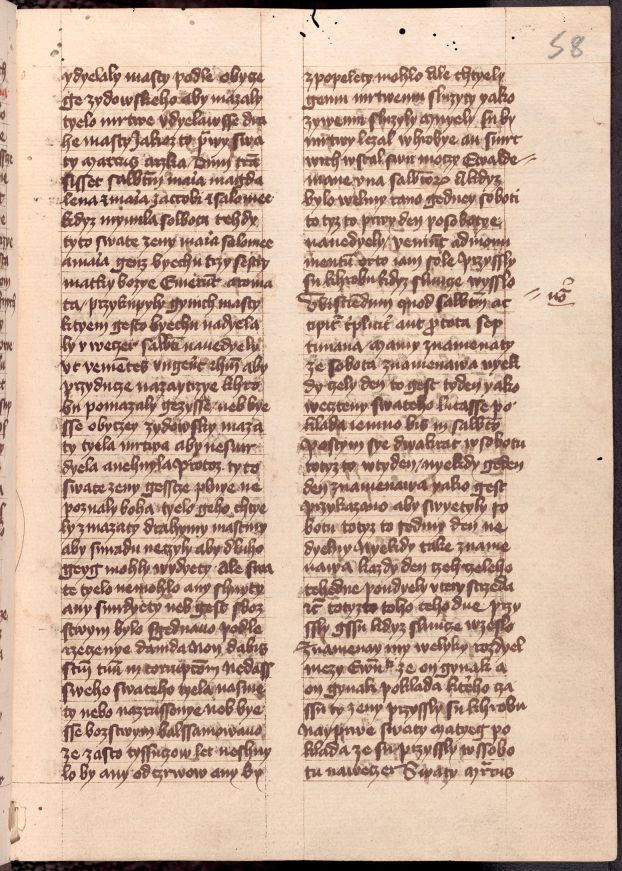 58
vdyelaly masty podle obycze
ge zydowskeho aby mazaly
tyelo mrtwe vdyelawsse dra
he masty Jakoz to prwy swa
ty marcus rzka Dum trn
sisset sabbm maria magda
lena et maria jacobi et salomee
kdyz mynula sobbota tehdy
tyto swate zeny maria salomee
a maria genz byechu trzy sestry
matky bozye Emerunt aroma
ta / przykupyly gynich masty
k tyem gesto byechu nadyela
ly v weczer sabbm nanedyeli
vt venientes vngerent ihm aby
przyduce nazaytrzye k hro
bu pomazaly gezysse neb bye
sse obyczey zydowsky maza
ty tyela mrtwa aby nesmr
dyela anehnyla Protoz ty to
swate zeny gessce plnye ne
poznaly boha tyelo geho chtye
ly zmazaty drahymy mastmy
aby smradu neczyly aby dluho
geyg mohly wydyety Ale swa
te tyelo nemohlo any shnyty
any smrdyety neb gest sboz
stwym bylo sgednano podle
rzeczenye dauida Non dabis
stm tuu in corrupcoem Nedass
sweho swateho tyela nasmr
ty nebo nazrussenye neb bye
sse bozstwym balssamowano
ze zasto tyssyczow let neshny
lo by any odczrwow any by
zpopelety mohlo Ale chtyely
gemu mrtwemu sluzyty yako
zywemu sluzyly amyely su by
mrtwy lezal whrobye an smrt
wich wstal swu moczy Et valde
mane vna sabbatorum A kdyz
bylo welmy rano gedney soboti
to tyz to prwy den posobotye
nanedyely / veniunt ad monu
mentum orto iam sole Przyssly
su k hrobu kdyz slunce wysslo
Obistcdum quod sabbtm ac
cipitr trplicitr aut p tota sep
timana Mamy znamenaty
ze sobota znamenawa nyek
dy czely den to gest tyden yako
wecztenyu swateho lucasse po
klada ieiuno bis in sabbto
Postym sye dwakrat w sobotu
totyz to wtyden / nyekdy geden
den znamenawa yako gest
przykazano aby swyetyly so
botu totyz to sedmy den ne
dyelny Nyekdy take zname
nawa kazdy den czeh czeleho
tehodne pondyely vtery strzeda
etc totyzto toho teho dne przy
ssly gssu kdyz slunce wzesslo
Znamenay my welyky rozdyel
mezy Ewan ze on gynak a
on gynak poklada ktereho cza
ssu ty zeny przyssly su k hrobu
Nayprwe swaty matyeg po
klada ze su przyssly wssobo
tu naweczer Swaty marcus